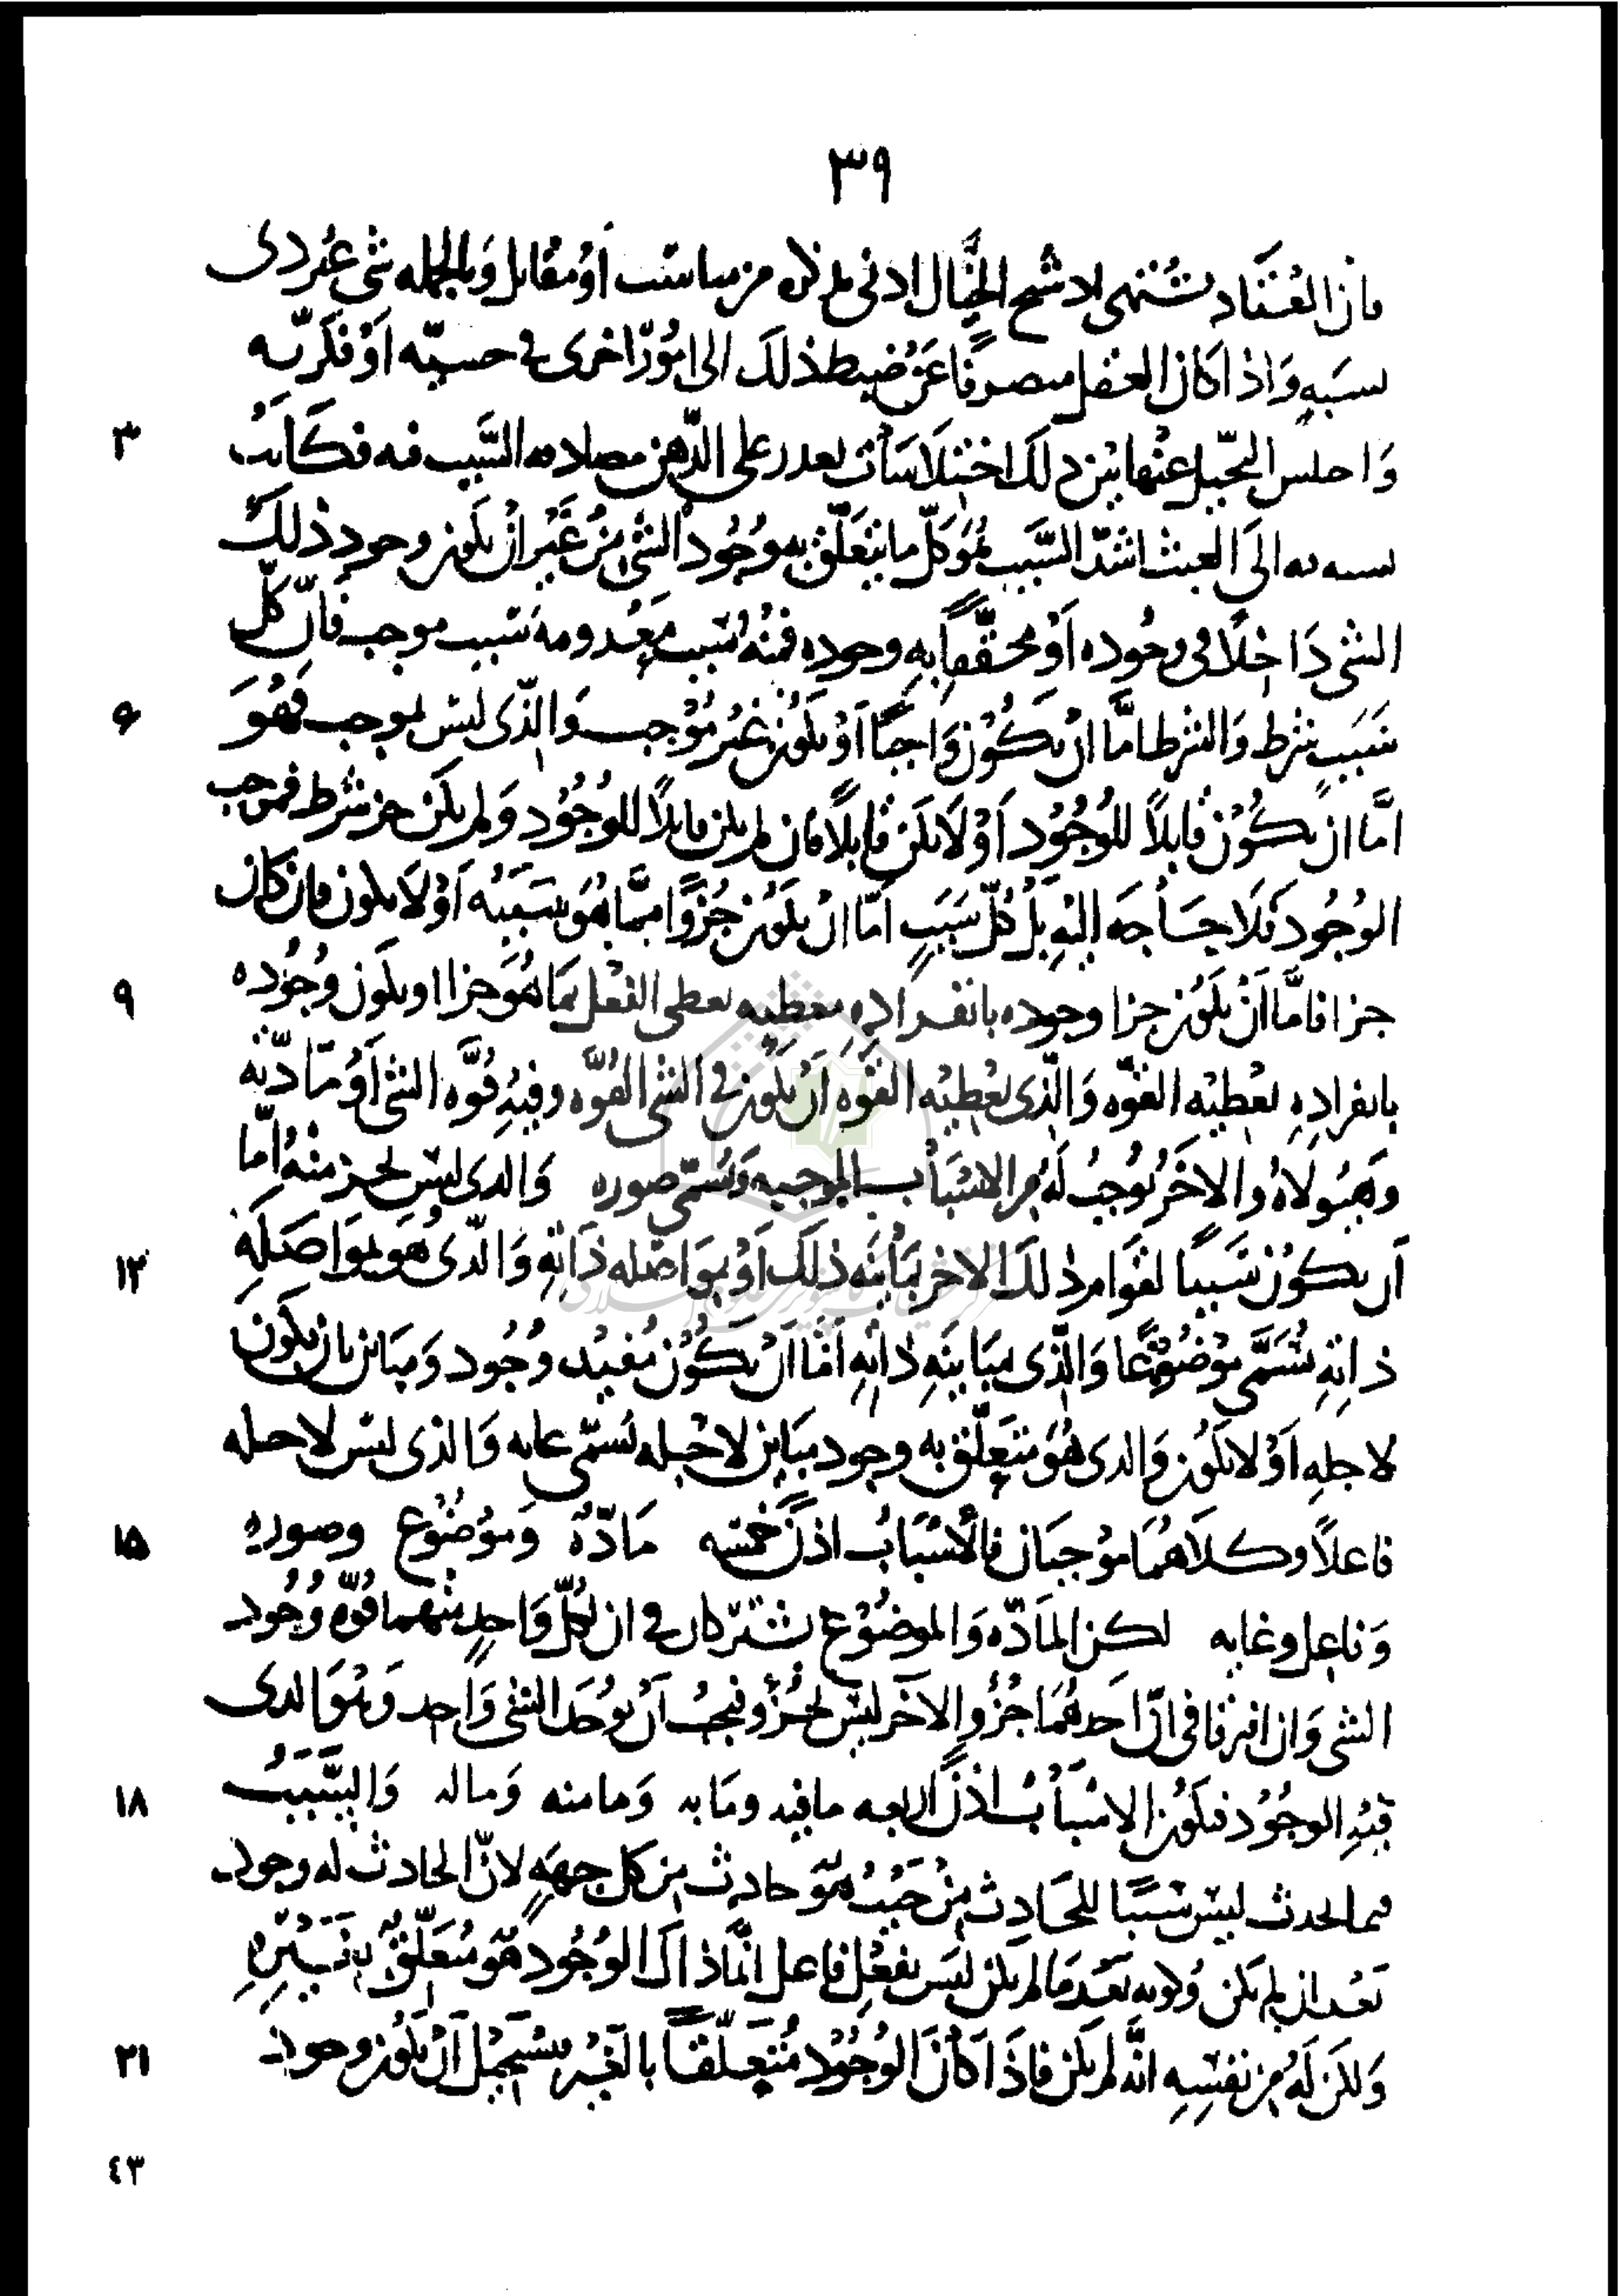 ٣٩
فان المعتاد تشتهى لا شح الخيال ادنى من مناسب او مقابل وبالجمله شى غير دى
سببه واذا كان العقل منصرفا عن ضبط ذلك الى امور اخرى فى حسيّه او فكريّه
٣ واختلس التخيل عنها بين ذلك اختلاسات تعذر على الذهن مصادفه السبب فيه فكانت
نسبته الى العبث اشدّ السبب هو كلّ ما يتعلّق به وجود الشى من غير ان يكون وجود ذلك
الشى داخلًا فى وجوده او محققًا به وجوده فمنه سبب معد ومنه سبب موجب فانّ كلّ
۶ سبب شرط والشرط امّا ان يكون واجبًا او يكون غير موجب والّذى ليس بموجب فهو
امّا ان يكون قابلاً للوجود او لا يكن قابلاً فان لم يكن قابلاً للوجود ولم يكن جز شرط فموجب
الوجود فلا حاجه اليه بل كلّ سبب امّا ان يكون جزوًا ممّا هو سببه او لا يكون فان كان
٩ جزا فامّا ان يكون جزا وجوده بانفراده معطيه يعطى الفعل بما هو جزا او يكون وجوده
بانفراده يعطيه القوّه والّذى يعطيه القوّه ان يكون فى الشى القوّه وفيه قوّه الشى او مادّته
وهيولاه والاخر يوجب له من الاسباب الموجبه وتسمّى صوره والذى ليس بجز منه امّا
١٢ ان يكون سببًا لقوام ذلك الاخر بمباينه ذلك او بمواصله ذاته والّذى هو بمواصله
ذاته تسمّى موضوعًا والّذى مباينه ذاته امّا ان يكون مفيد وجود ومباين بان يكون
لاجله او لا يكون والذى هو متعلّق به وجود مباين لاجله تسمّى غايه والذى ليس لاجله
١۵ فاعلاً وكلاهما موجبان فالاسباب اذن خمسه مادّه وموضوع وصوره
وفاعل وغايه لكن المادّه والموضوع يشتركان فى ان لكلّ واحد منهما قوّه وجود
الشى وان افترقا فى انّ احدهما جزؤ والاخر ليس بجزؤ فيجب ان يوخذ الشى واحد وهو الذى
١٨ فيه الوجود فتكون الاسباب اذن اربعه ما فيه وما به وما منه وما له والسبب
فيما الحدث ليس سببًا للحادث من حيث هو حادث من كل جهه لانّ الحادث له وجود
بعد ان لم يكن وكونه بعد ما لم يكن ليس بفعل فاعل انّما ذاك الوجود هو متعلّق بغيره
٢١ ولكن له من نفسه انّه لم يكن فاذا كان الوجود متعلّقًا بالغير فيستحيل ان يكون وجود
٤٣